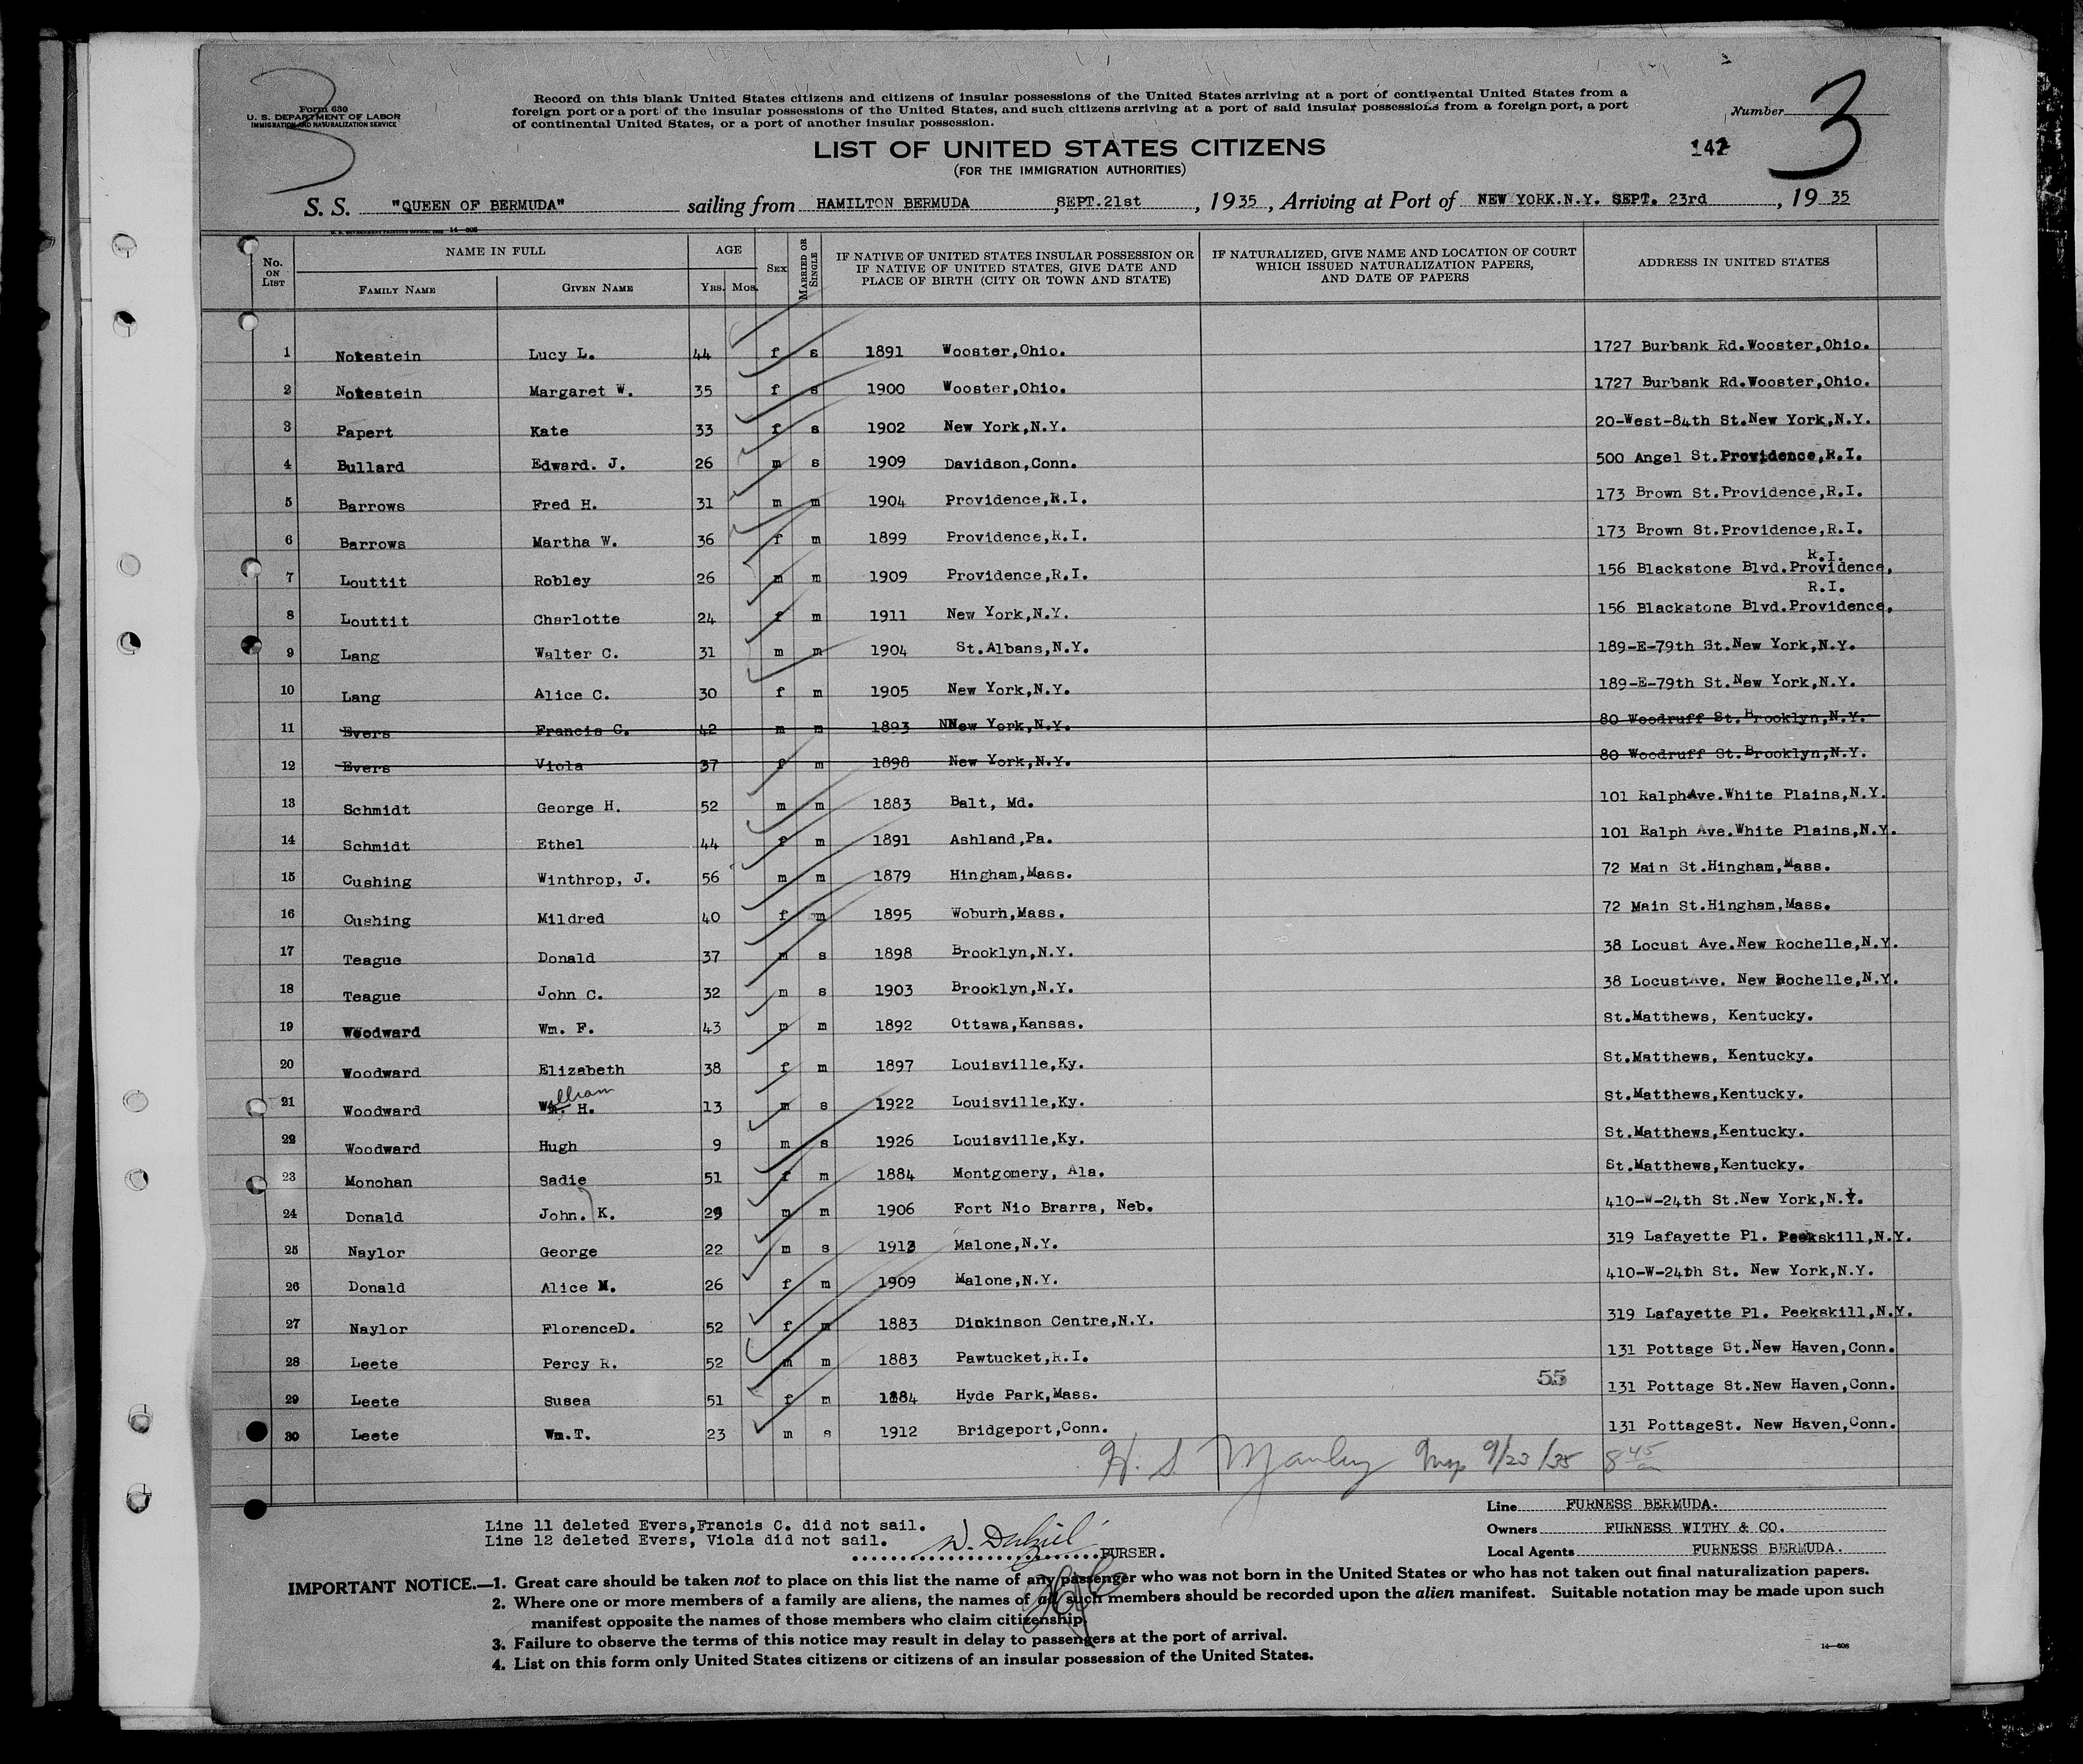 Form 630
U. S. DEPARTMENT OF LABOR
IMMIGRATION AND NATURALIZATION SERVICE
3
Record on this blank United States citizens and citizens of insular possessions of the United States arriving at a port of continental United States from a
foreign port or a port of the insular possessions of the United States, and such citizens arriving at a port of said insular possessions from a foreign port, a port
of continental United States, or a port of another insular possession.
Number 3
LIST OF UNITED STATES CITIZENS
(FOR THE IMMIGRATION AUTHORITIES)
S. S. "QUEEN OF BERMUDA" sailing from HAMILTON BERMUDA, SEPT.21st, 1935, Arriving at Port of NEW YORK.N.Y. SEPT. 23rd, 1935
No. ON LIST NAME IN FULL FAMILY NAME GIVEN NAME AGE YRS. MOS. SEX MARRIED OR SINGLE IF NATIVE OF UNITED STATES INSULAR POSSESSION OR IF NATIVE OF UNITED STATES, GIVE DATE AND PLACE OF BIRTH (CITY OR TOWN AND STATE) IF NATURALIZED, GIVE NAME AND LOCATION OF COURT WHICH ISSUED NATURALIZATION PAPERS, AND DATE OF PAPERS ADDRESS IN UNITED STATES
1 Notestein Lucy L. 44 f s 1891 Wooster,Ohio. 1727 Burbank Rd.Wooster,Ohio.
2 Notestein Margaret W. 35 f s 1900 Wooster,Ohio. 1727 Burbank Rd.Wooster,Ohio.
3 Papert Kate 33 f s 1902 New York,N.Y. 20-West-84th St.New York,N.Y.
4 Bullard Edward. J. 26 m s 1909 Davidson,Conn. 500 Angel St.Providence,R.I.
5 Barrows Fred H. 31 m m 1904 Providence,R.I. 173 Brown St.Providence,R.I.
6 Barrows Martha W. 36 f m 1899 Providence,R.I. 173 Brown St.Providence,R.I.
7 Louttit Robley 26 m m 1909 Providence,R.I. 156 Blackstone Blvd.Providence, R.I.
8 Louttit Charlotte 24 f m 1911 New York,N.Y. 156 Blackstone Blvd.Providence, R.I.
9 Lang Walter C. 31 m m 1904 St.Albans,N.Y. 189-E-79th St.New York,N.Y.
10 Lang Alice C. 30 f m 1905 New York,N.Y. 189-E-79th St.New York,N.Y.
11 Evers Francis C. 42 m m 1893 NNew York,N.Y. 80 Woodruff St.Brooklyn,N.Y.
12 Evers Viola 37 f m 1898 New York,N.Y. 80 Woodruff St.Brooklyn,N.Y.
13 Schmidt George H. 52 m m 1883 Balt, Md. 101 RalphAve.White Plains,N.Y.
14 Schmidt Ethel 44 f m 1891 Ashland,Pa. 101 Ralph Ave.White Plains,N.Y.
15 Cushing Winthrop, J. 56 m m 1879 Hingham,Mass. 72 Main St.Hingham,Mass.
16 Cushing Mildred 40 f m 1895 Woburh,Mass. 72 Main St.Hingham,Mass.
17 Teague Donald 37 m s 1898 Brooklyn,N.Y. 38 Locust Ave.New Rochelle,N.Y.
18 Teague John C. 32 m s 1903 Brooklyn,N.Y. 38 LocustAve. New Rochelle,N.Y.
19 Woodward Wm. F. 43 m m 1892 Ottawa,Kansas. St.Matthews, Kentucky.
20 Woodward Elizabeth 38 f m 1897 Louisville,Ky. St.Matthews, Kentucky.
21 Woodward William H. 13 m s 1922 Louisville,Ky. St.Matthews,Kentucky.
22 Woodward Hugh 9 m s 1926 Louisville,Ky. St.Matthews,Kentucky.
23 Monohan Sadie 51 f m 1884 Montgomery, Ala. St.Matthews,Kentucky.
24 Donald John. K. 29 m m 1906 Fort Nio Brarra, Neb. 410-W-24th St.New York,N.Y.
25 Naylor George 22 m s 1913 Malone,N.Y. 319 Lafayette Pl. Peekskill,N.Y.
26 Donald Alice M. 26 f m 1909 Malone,N.Y. 410-W-24th St. New York,N.Y.
27 Naylor FlorenceD. 52 f m 1883 Dickinson Centre,N.Y. 319 Lafayette Pl. Peekskill,N.Y.
28 Leete Percy R. 52 m m 1883 Pawtucket,R.I. 131 Pottage St.New Haven,Conn.
29 Leete Susea 51 f m 1884 Hyde Park,Mass. 55 131 Pottage St.New Haven,Conn.
30 Leete Wm.T. 23 m s 1912 Bridgeport,Conn. 131 PottageSt. New Haven,Conn.
H. S Manley 9/23/35 8 45
Line 11 deleted Evers,Francis C. did not sail.
Line 12 deleted Evers, Viola did not sail.
PURSER.
Line FURNESS BERMUDA.
Owners FURNESS WITHY & CO.
Local Agents FURNESS BERMUDA.
IMPORTANT NOTICE.—1. Great care should be taken not to place on this list the name of any passenger who was not born in the United States or who has not taken out final naturalization papers.
2. Where one or more members of a family are aliens, the names of all such members should be recorded upon the alien manifest. Suitable notation may be made upon such
manifest opposite the names of those members who claim citizenship.
3. Failure to observe the terms of this notice may result in delay to passengers at the port of arrival.
4. List on this form only United States citizens or citizens of an insular possession of the United States.
14—606